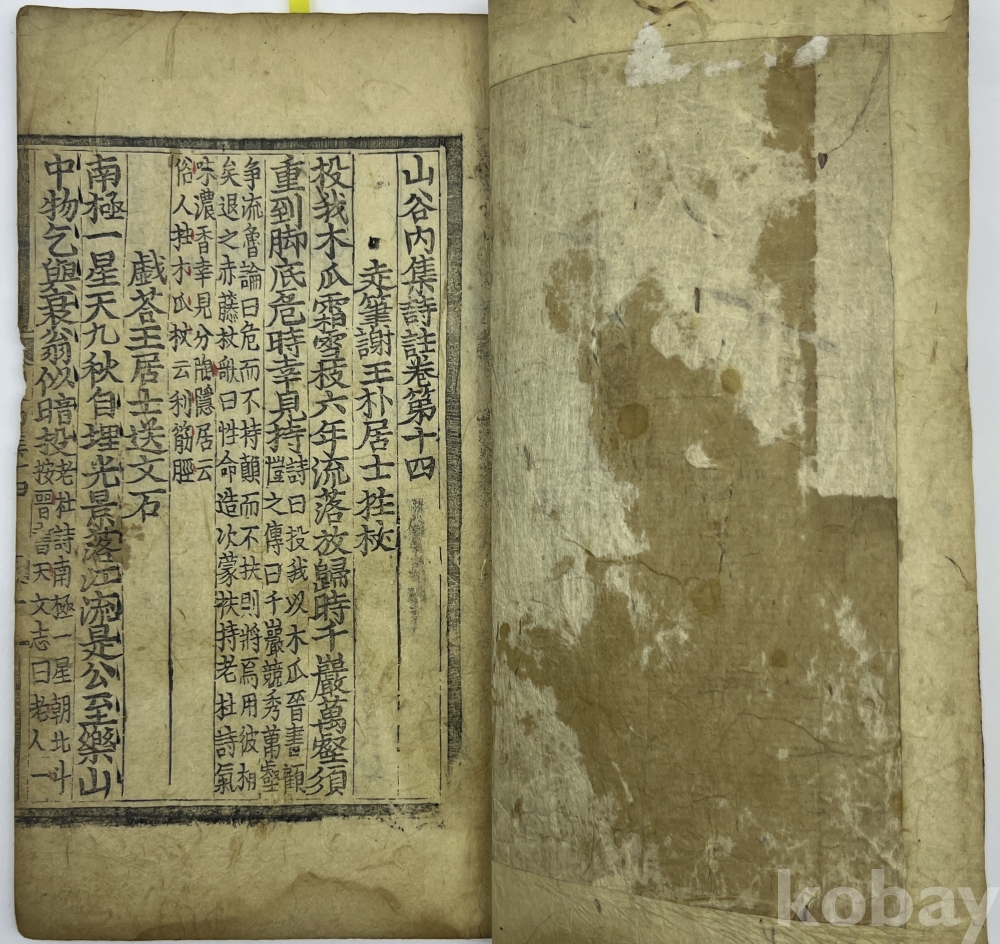 山谷内集詩註卷第十四
走筆謝王朴居士拄杖
投我木瓜霜雪枝六年流落放歸時千巖萬壑須
重到脚底危時幸見持
詩曰投我以木瓜晉書顧
愷之傳曰千巖競秀萬壑
争流魯論曰危而不持顛而不扶則將焉用彼相
矣退之赤藤杖歌曰性命造次蒙扶持老杜詩氣
味濃香幸見分陶隱居云
俗人拄木瓜杖云利筋脛
戯荅王居士送文石
南極一星天九秋自埋光景落江流是公至樂山
中物乞與衰翁似暗投
老杜詩南極一星朝北斗
按晉書天文志曰老人一
kobay